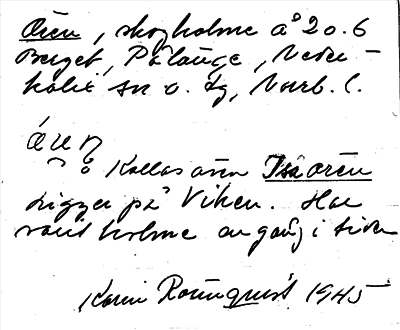 Ören, skogholme å 20.6
Berget, Pålänge, Neder-
kalix sn o. tg, Norrb. l.
Kallas även Isaören
Ligger på Viken. Har
varit holme en gång i tiden
Karin Rönnquist 1945